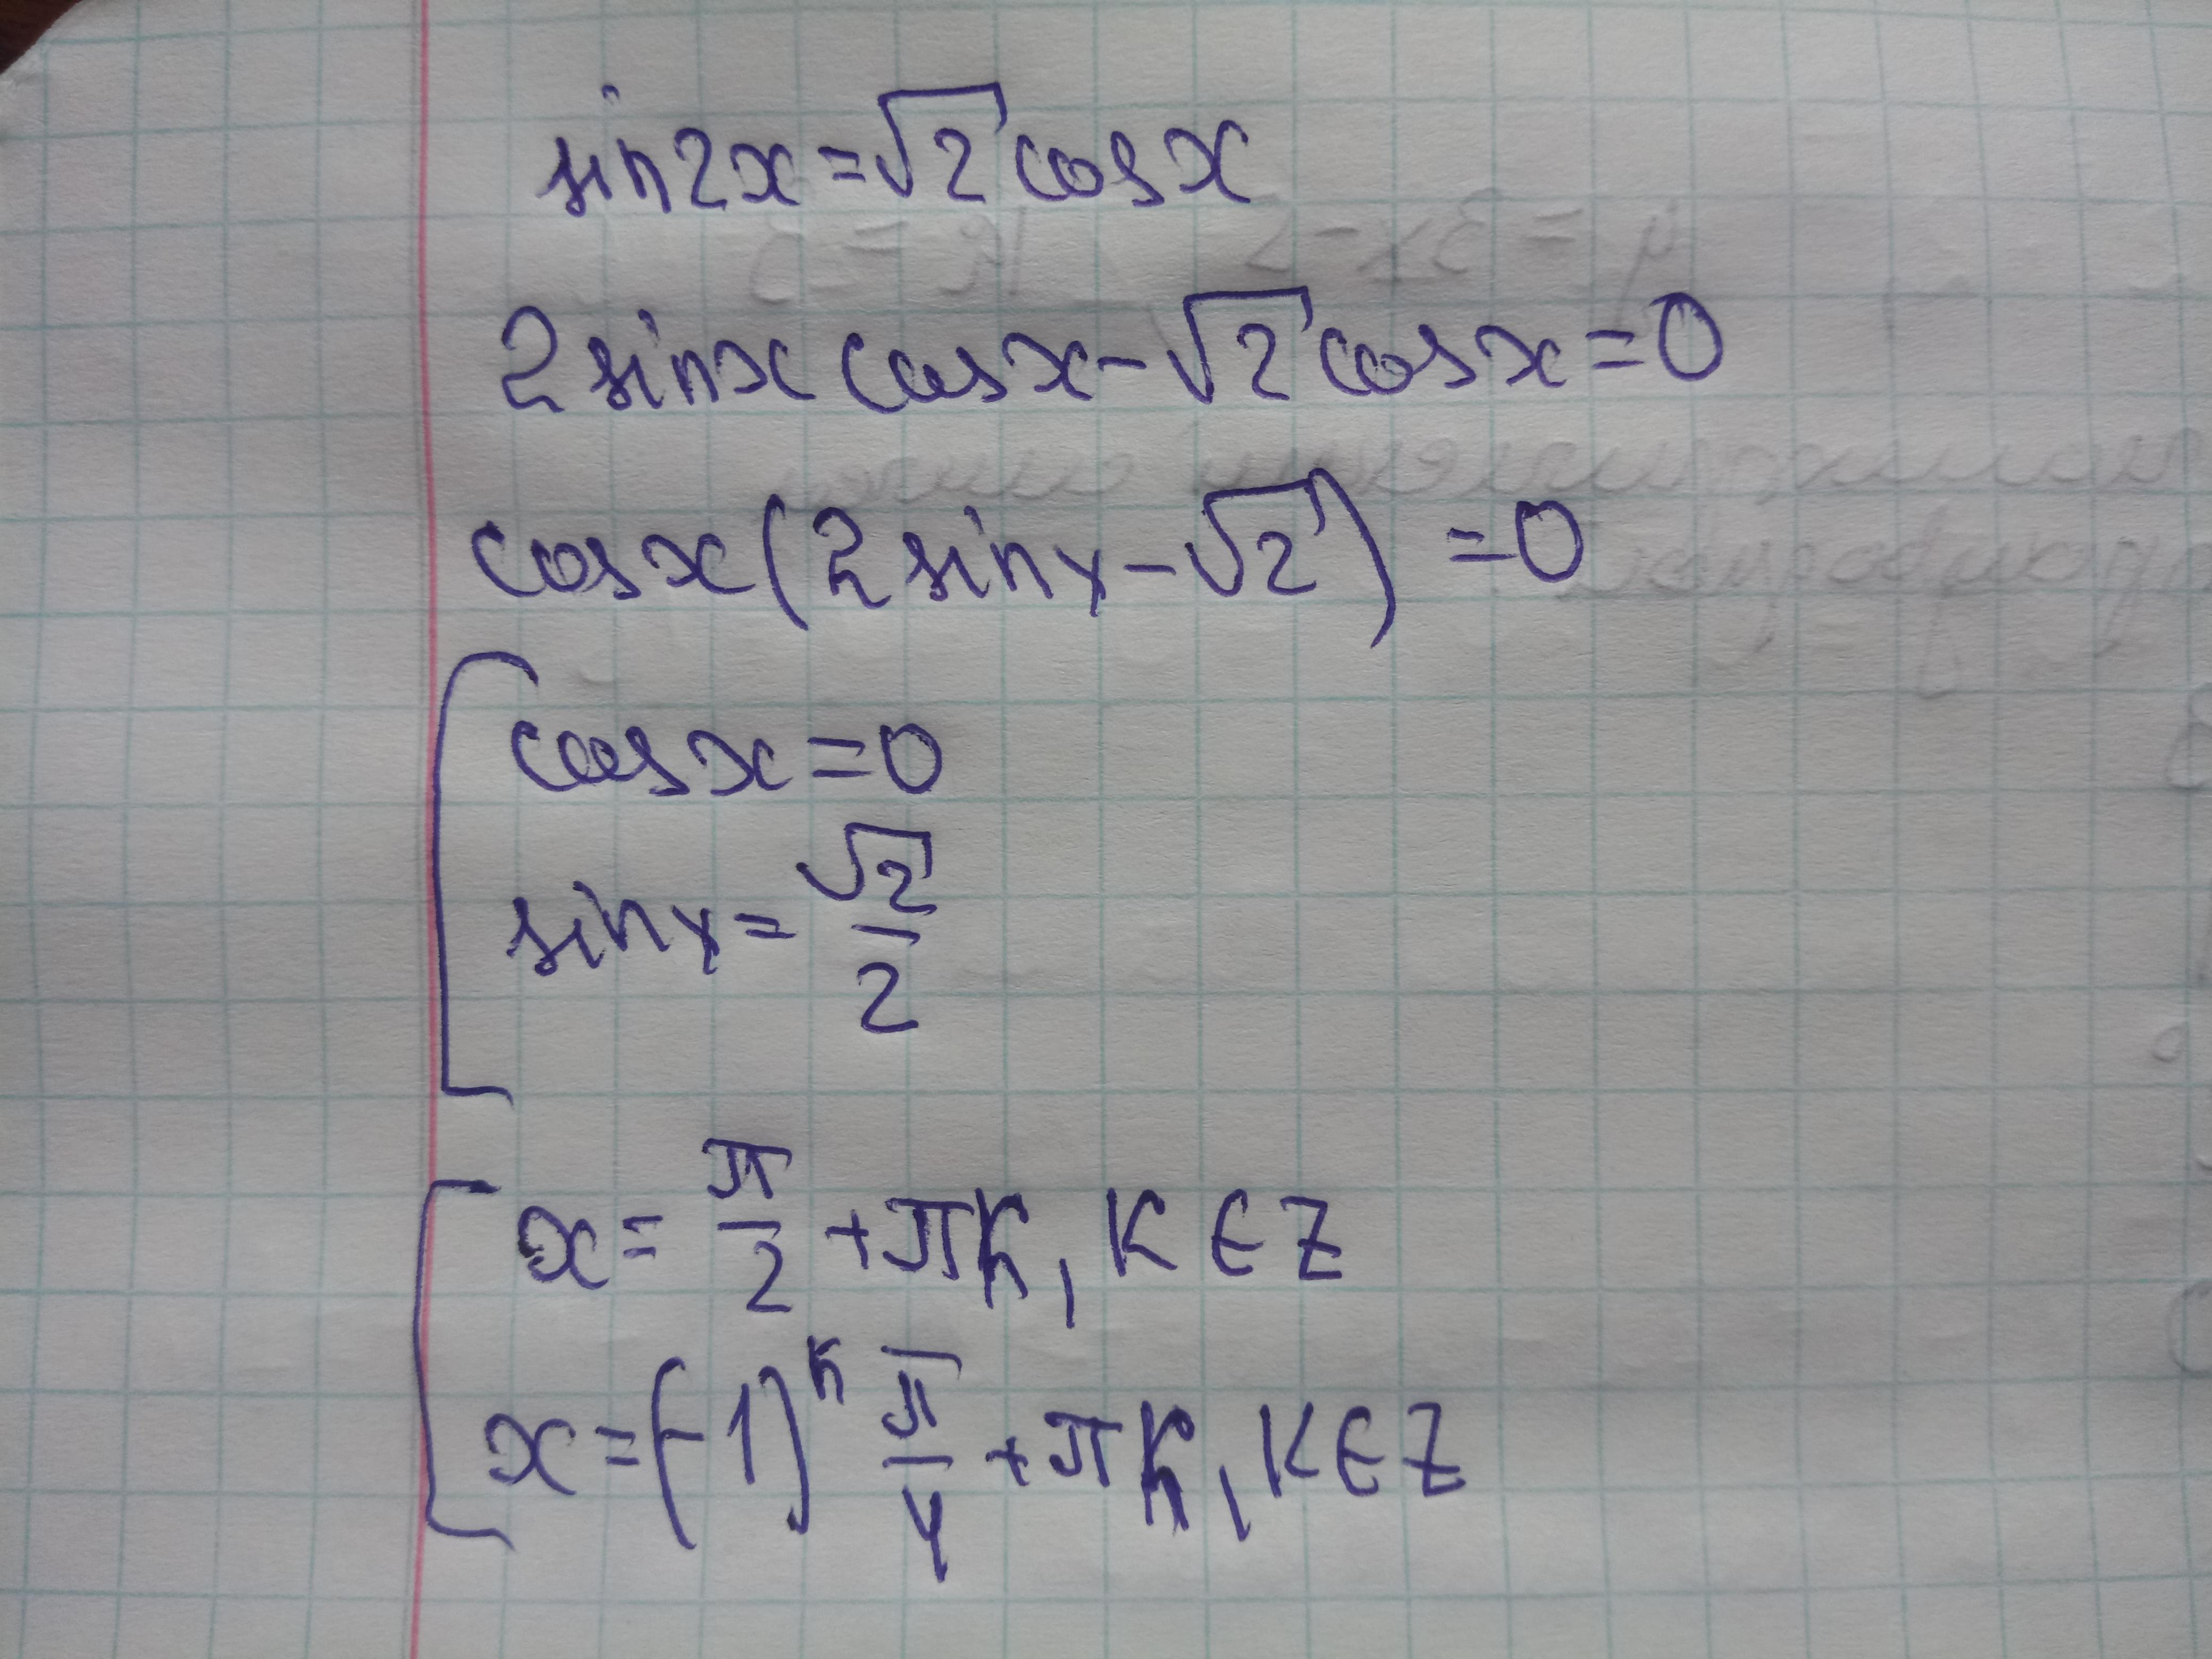 sin2x=√2 cosx
2sinx cosx-√2 cosx=0
cosx(2sinx-√2)=0
cosx=0
sinx=√2/2
x=π/2+πk, k∈Z
x=(-1)^k π/4+πk, k∈Z